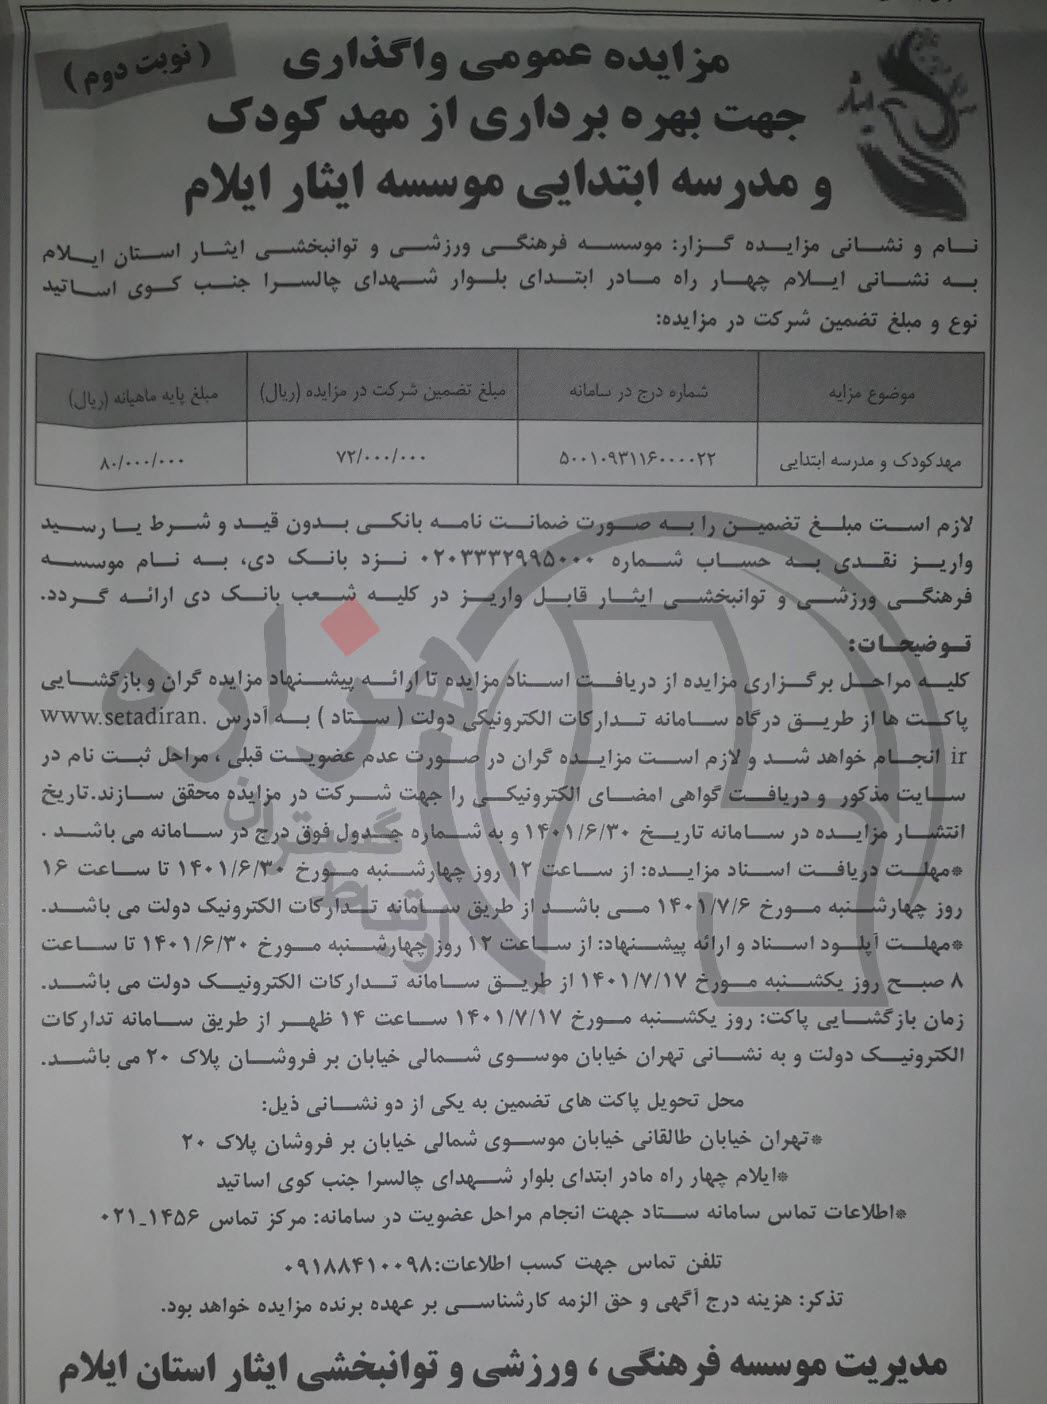 ( نوبت دوم )
مزایده عمومی واگذاری
جهت بهره برداری از مهد کودک
و مدرسه ابتدایی موسسه ایثار ایلام
ایثار
نام و نشانی مزایده گزار: موسسه فرهنگی ورزشی و توانبخشی ایثار استان ایلام
به نشانی ایلام چهار راه مادر ابتدای بلوار شهدای چالسرا جنب کوی اساتید
نوع و مبلغ تضمین شرکت در مزایده:
موضوع مزایه شماره درج در سامانه مبلغ تضمین شرکت در مزایده (ریال) مبلغ پایه ماهیانه (ریال)
مهدکودک و مدرسه ابتدایی ۵۰۰۱۰۹۳۱۱۶۰۰۰۰۲۲ ۷۲/۰۰۰/۰۰۰ ۸۰/۰۰۰/۰۰۰
لازم است مبلغ تضمین را به صورت ضمانت نامه بانکی بدون قید و شرط یا رسید
واریز نقدی به حساب شماره ۰۲۰۳۳۳۲۹۹۵۰۰۰ نزد بانک دی، به نام موسسه
فرهنگی ورزشی و توانبخشی ایثار قابل واریز در کلیه شعب بانک دی ارائه گردد.
توضیحات:
کلیه مراحل برگزاری مزایده از دریافت اسناد مزایده تا ارائه پیشنهاد مزایده گران و بازگشایی
پاکت ها از طریق درگاه سامانه تدارکات الکترونیکی دولت ( ستاد ) به آدرس www.setadiran.
ir انجام خواهد شد و لازم است مزایده گران در صورت عدم عضویت قبلی ، مراحل ثبت نام در
سایت مذکور و دریافت گواهی امضای الکترونیکی را جهت شرکت در مزایده محقق سازند.تاریخ
انتشار مزایده در سامانه تاریخ ۱۴۰۱/۶/۳۰ و به شماره جدول فوق درج در سامانه می باشد .
*مهلت دریافت اسناد مزایده: از ساعت ۱۲ روز چهارشنبه مورخ ۱۴۰۱/۶/۳۰ تا ساعت ۱۶
روز چهارشنبه مورخ ۱۴۰۱/۷/۶ می باشد از طریق سامانه تدارکات الکترونیک دولت می باشد.
*مهلت آپلود اسناد و ارائه پیشنهاد: از ساعت ۱۲ روز چهارشنبه مورخ ۱۴۰۱/۶/۳۰ تا ساعت
۸ صبح روز یکشنبه مورخ ۱۴۰۱/۷/۱۷ از طریق سامانه تدارکات الکترونیک دولت می باشد.
زمان بازگشایی پاکت: روز یکشنبه مورخ ۱۴۰۱/۷/۱۷ ساعت ۱۴ ظهر از طریق سامانه تدارکات
الکترونیک دولت و به نشانی تهران خیابان موسوی شمالی خیابان بر فروشان پلاک ۲۰ می باشد.
محل تحویل پاکت های تضمین به یکی از دو نشانی ذیل:
*تهران خیابان طالقانی خیابان موسوی شمالی خیابان بر فروشان پلاک ۲۰
*ایلام چهار راه مادر ابتدای بلوار شهدای چالسرا جنب کوی اساتید
*اطلاعات تماس سامانه ستاد جهت انجام مراحل عضویت در سامانه: مرکز تماس ۱۴۵۶_۰۲۱
تلفن تماس جهت کسب اطلاعات:۰۹۱۸۸۴۱۰۰۹۸
تذکر: هزینه درج آگهی و حق الزمه کارشناسی بر عهده برنده مزایده خواهد بود.
مدیریت موسسه فرهنگی ، ورزشی و توانبخشی ایثار استان ایلام
هزاره
ارتباط گستران